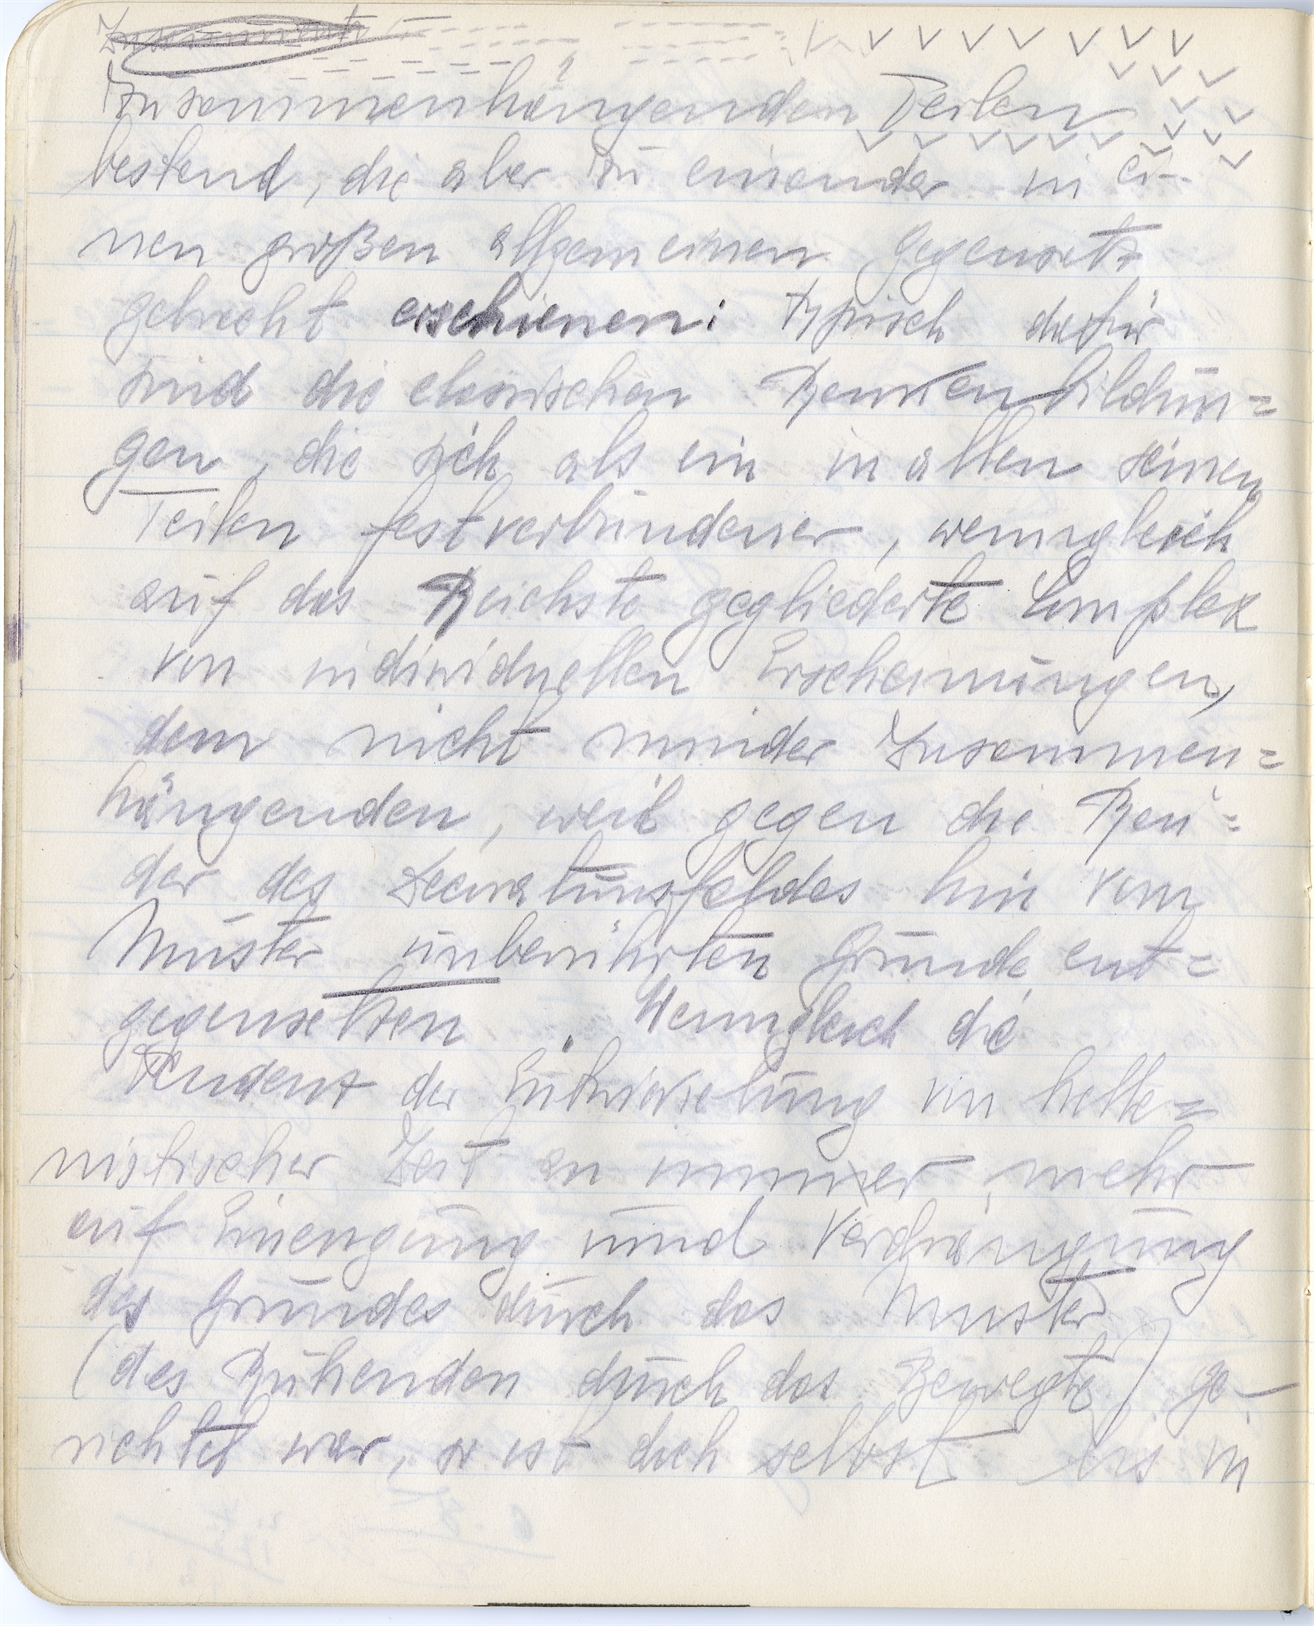 Zusamment
Zusammenhängenden Teilen
bestand, die aber zu einander in ei-
nen großen allgemeinen Gegensatz
gebracht erschienen: Typisch dafür
sind die classischen Rankenbildun=
gen, die sich als ein in allen seinen
Teilen festverbundener, wenngleich
auf das Reichste gegliederte Complex
von individuellen Erscheinungen,
dem nicht minder Zusammen=
hängenden, weil gegen die Rän=
der des Decoratunsfeldes hin vom
Muster unberührten Grunde ent=
gegensetzen. Wenngleich die
Tendenz der Entwickelung von helle=
nistischer Zeit an immer mehr
auf Einengung und Verdrängung
des Grundes durch das Muster
(des Ruhenden durch das Bewegte) ge-
richtet war, so ist doch selbst bis in